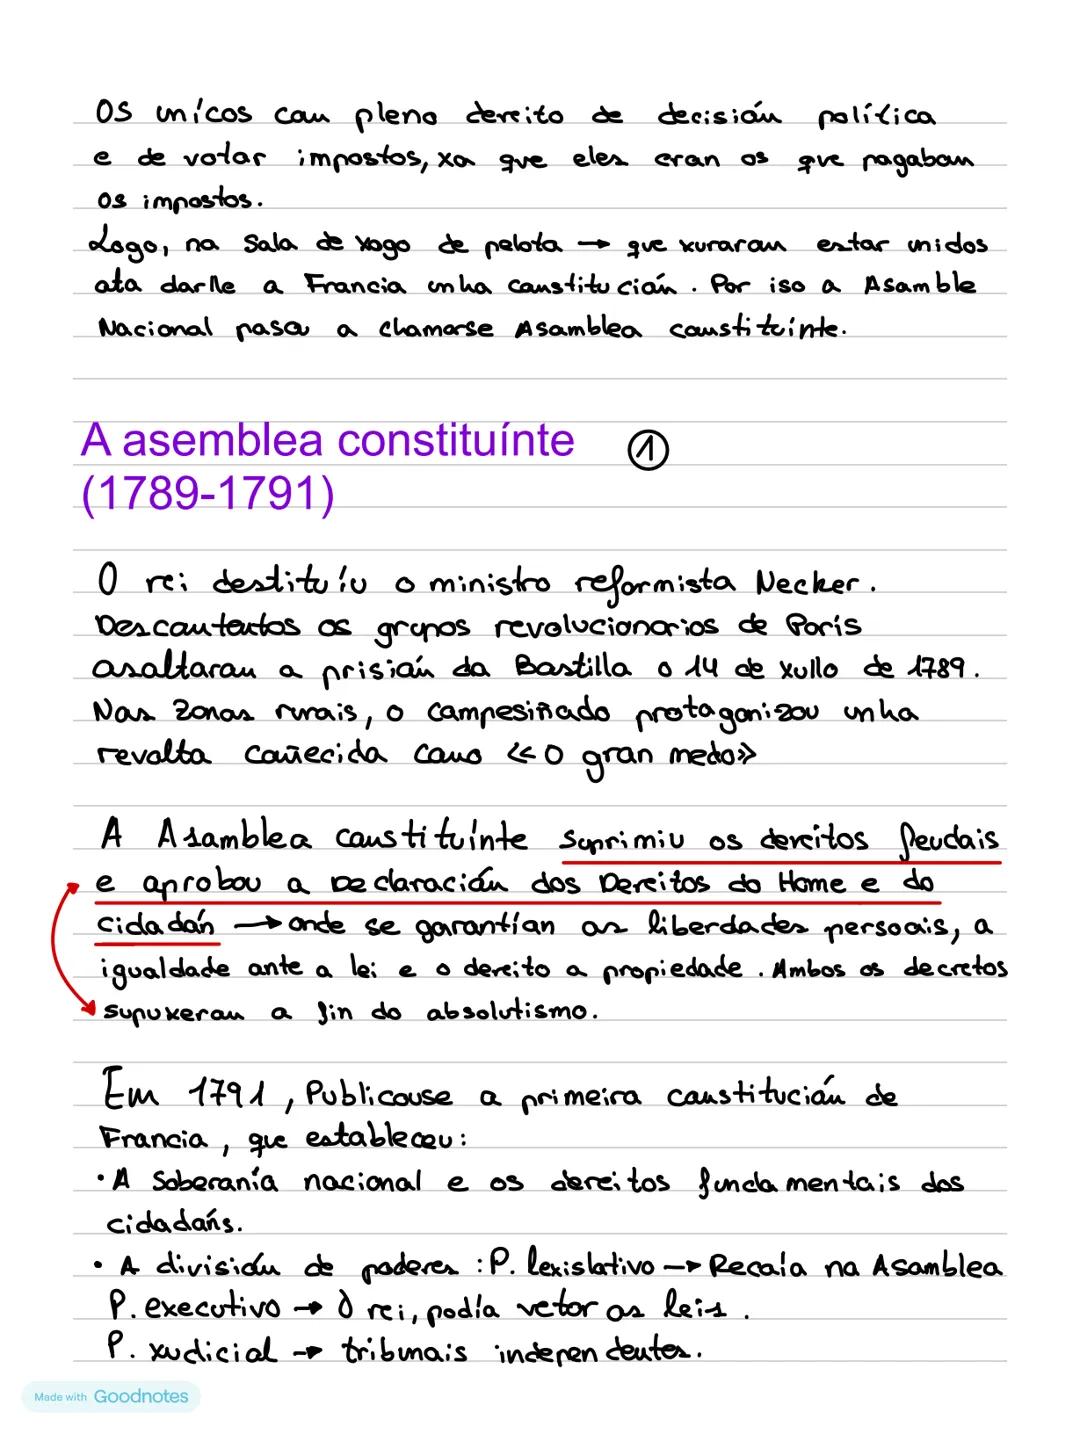 os únicos con pleno dereito de decisión política
e de votar impostos, xa que eles eran os que pagaban
os impostos.
Logo, na Sala de xogo de pelota → que xuraran estar unidos
ata darlle a Francia unha constitución. Por iso a Asamble
Nacional pasou a chamarse Asamblea constituínte.
A asemblea constituínte ①
(1789-1791)
O rei destituíu o ministro reformista Necker.
Descontentos os grupos revolucionarios de París
asaltaran a prisión da Bastilla o 14 de xullo de 1789.
Nas zonas rurais, o campesiñado protagonizou unha
revolta coñecida como «O gran medo»
A Asamblea constituínte suprimiu os dereitos feudais
e aprobou a Declaración dos Dereitos do Home e do
cidadán → onde se garantían as liberdades persoais, a
igualdade ante a lei e o dereito a propiedade. Ambos os decretos
supuxeran a fin do absolutismo.
Em 1791, Publicouse a primeira constitución de
Francia, que estableceu:
• A Soberanía nacional e os dereitos fundamentais dos
cidadáns.
• A división de poderes: P. lexislativo → Recaía na Asamblea
P. executivo → O rei, podía vetar as leis.
P. xudicial → tribunais independentes.
Made with Goodnotes